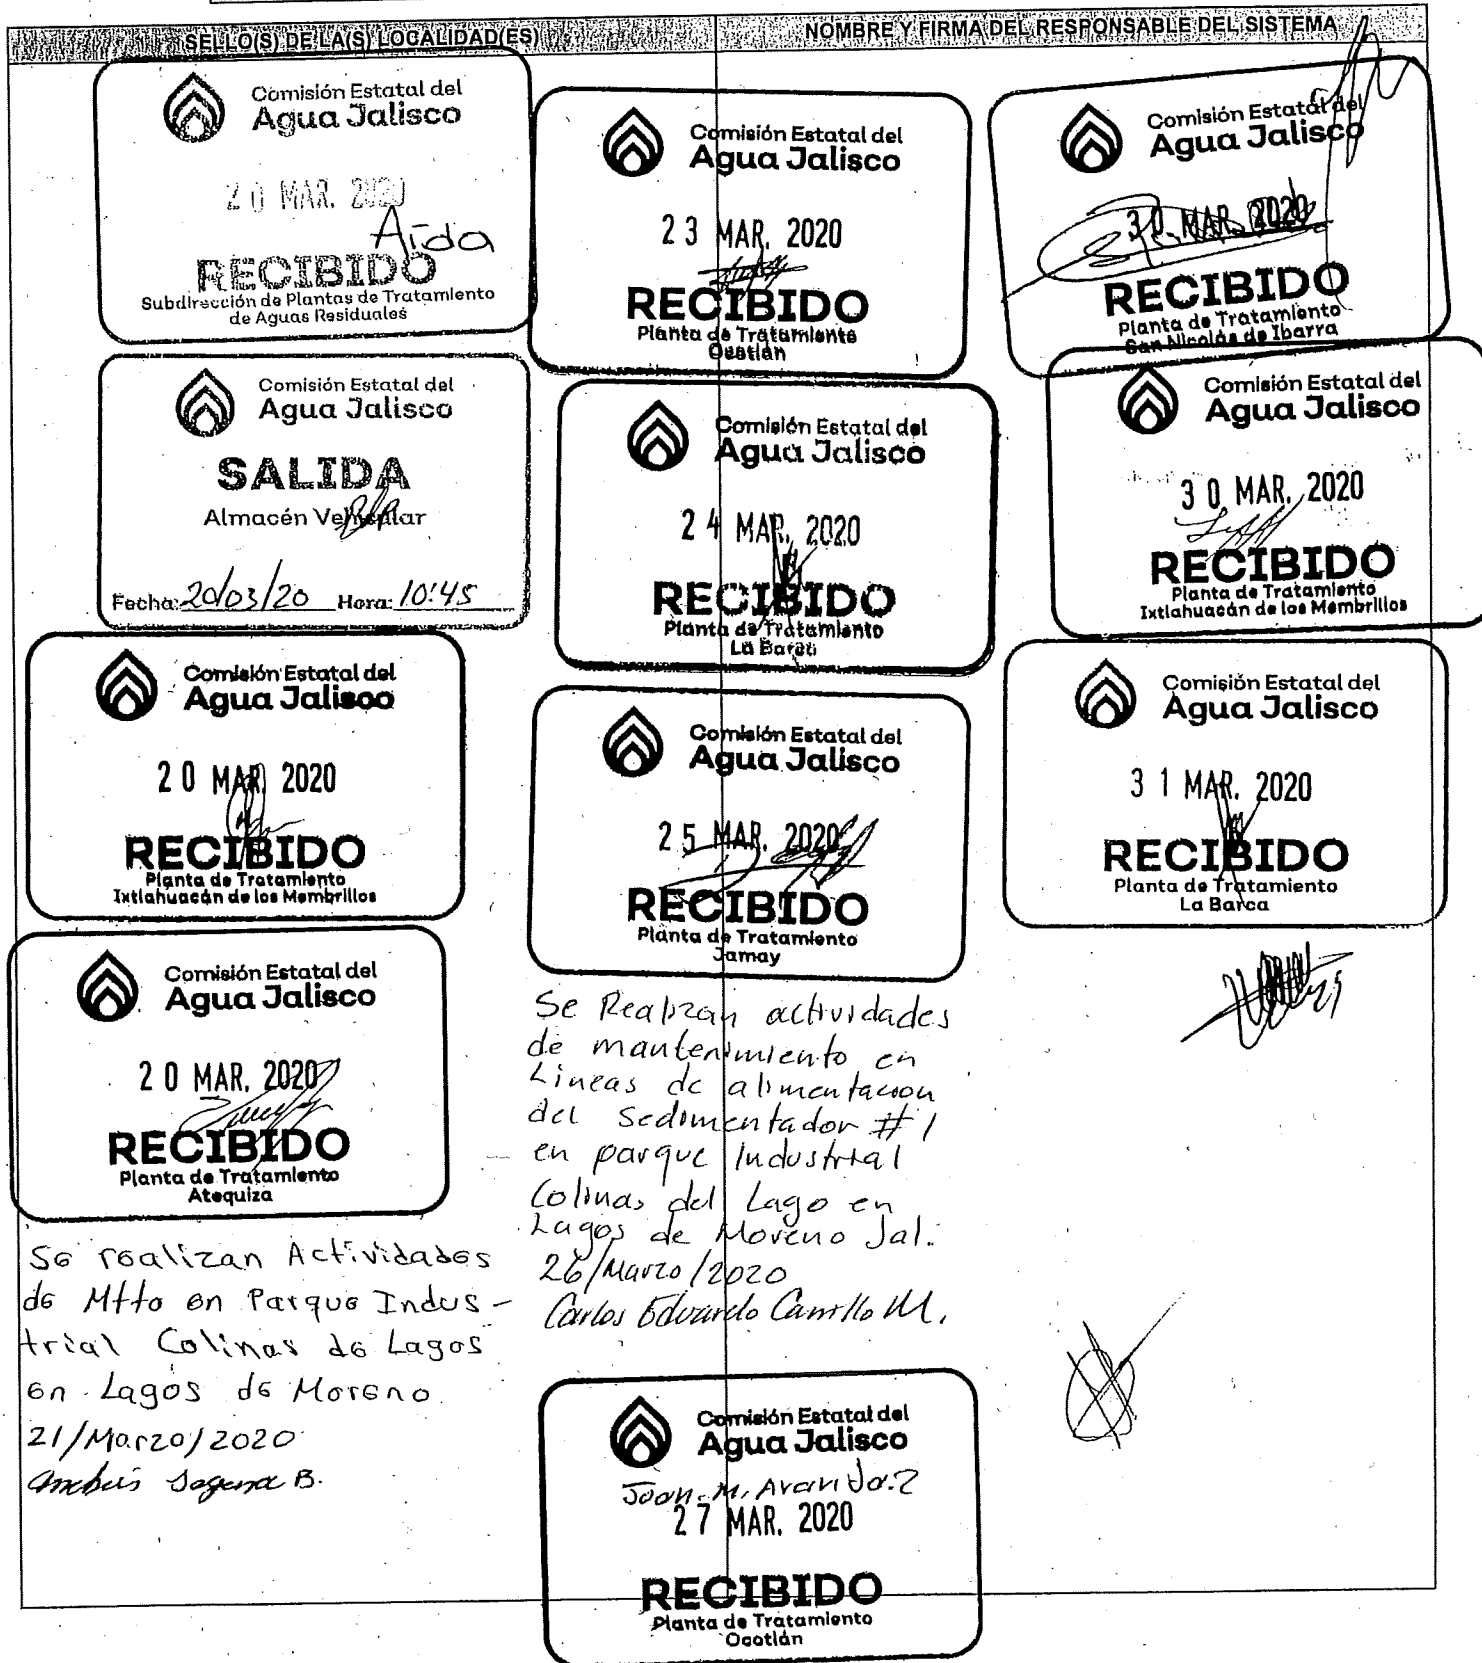 SELLO(S) DE LA(S) LOCALIDAD(ES)
NOMBRE Y FIRMA DEL RESPONSABLE DEL SISTEMA
Comisión Estatal del
Agua Jalisco
20 MAR. 2020
Aida
RECIBIDO
Subdirección de Plantas de Tratamiento
de Aguas Residuales
Comisión Estatal del
Agua Jalisco
SALIDA
Almacén Vehicular
Fecha: 20/03/20 Hora: 10:45
Comisión Estatal del
Agua Jalisco
20 MAR. 2020
RECIBIDO
Planta de Tratamiento
Ixtlahuacán de los Membrillos
Comisión Estatal del
Agua Jalisco
20 MAR. 2020
RECIBIDO
Planta de Tratamiento
Atequiza
Se realizan Actividades
de Mtto en Parque Indus-
trial Colinas de Lagos
en Lagos de Moreno
21/Marzo/2020
B.
Comisión Estatal del
Agua Jalisco
23 MAR. 2020
RECIBIDO
Planta de Tratamiento
Ocotlán
Comisión Estatal del
Agua Jalisco
24 MAR. 2020
RECIBIDO
Planta de Tratamiento
La Barca
Comisión Estatal del
Agua Jalisco
25 MAR. 2020
RECIBIDO
Planta de Tratamiento
Jamay
Se Realizan actividades
de mantenimiento en
Lineas de alimentacion
del Sedimentador #1
en parque Industrial
Colinas del Lago en
Lagos de Moreno Jal.
26/Marzo/2020
Carlos Eduardo Carrillo M.
Comisión Estatal del
Agua Jalisco
Juan M. Aranda Z
27 MAR. 2020
RECIBIDO
Planta de Tratamiento
Ocotlán
Comisión Estatal del
Agua Jalisco
30 MAR. 2020
RECIBIDO
Planta de Tratamiento
San Nicolás de Ibarra
Comisión Estatal del
Agua Jalisco
30 MAR. 2020
RECIBIDO
Planta de Tratamiento
Ixtlahuacán de los Membrillos
Comisión Estatal del
Agua Jalisco
31 MAR. 2020
RECIBIDO
Planta de Tratamiento
La Barca